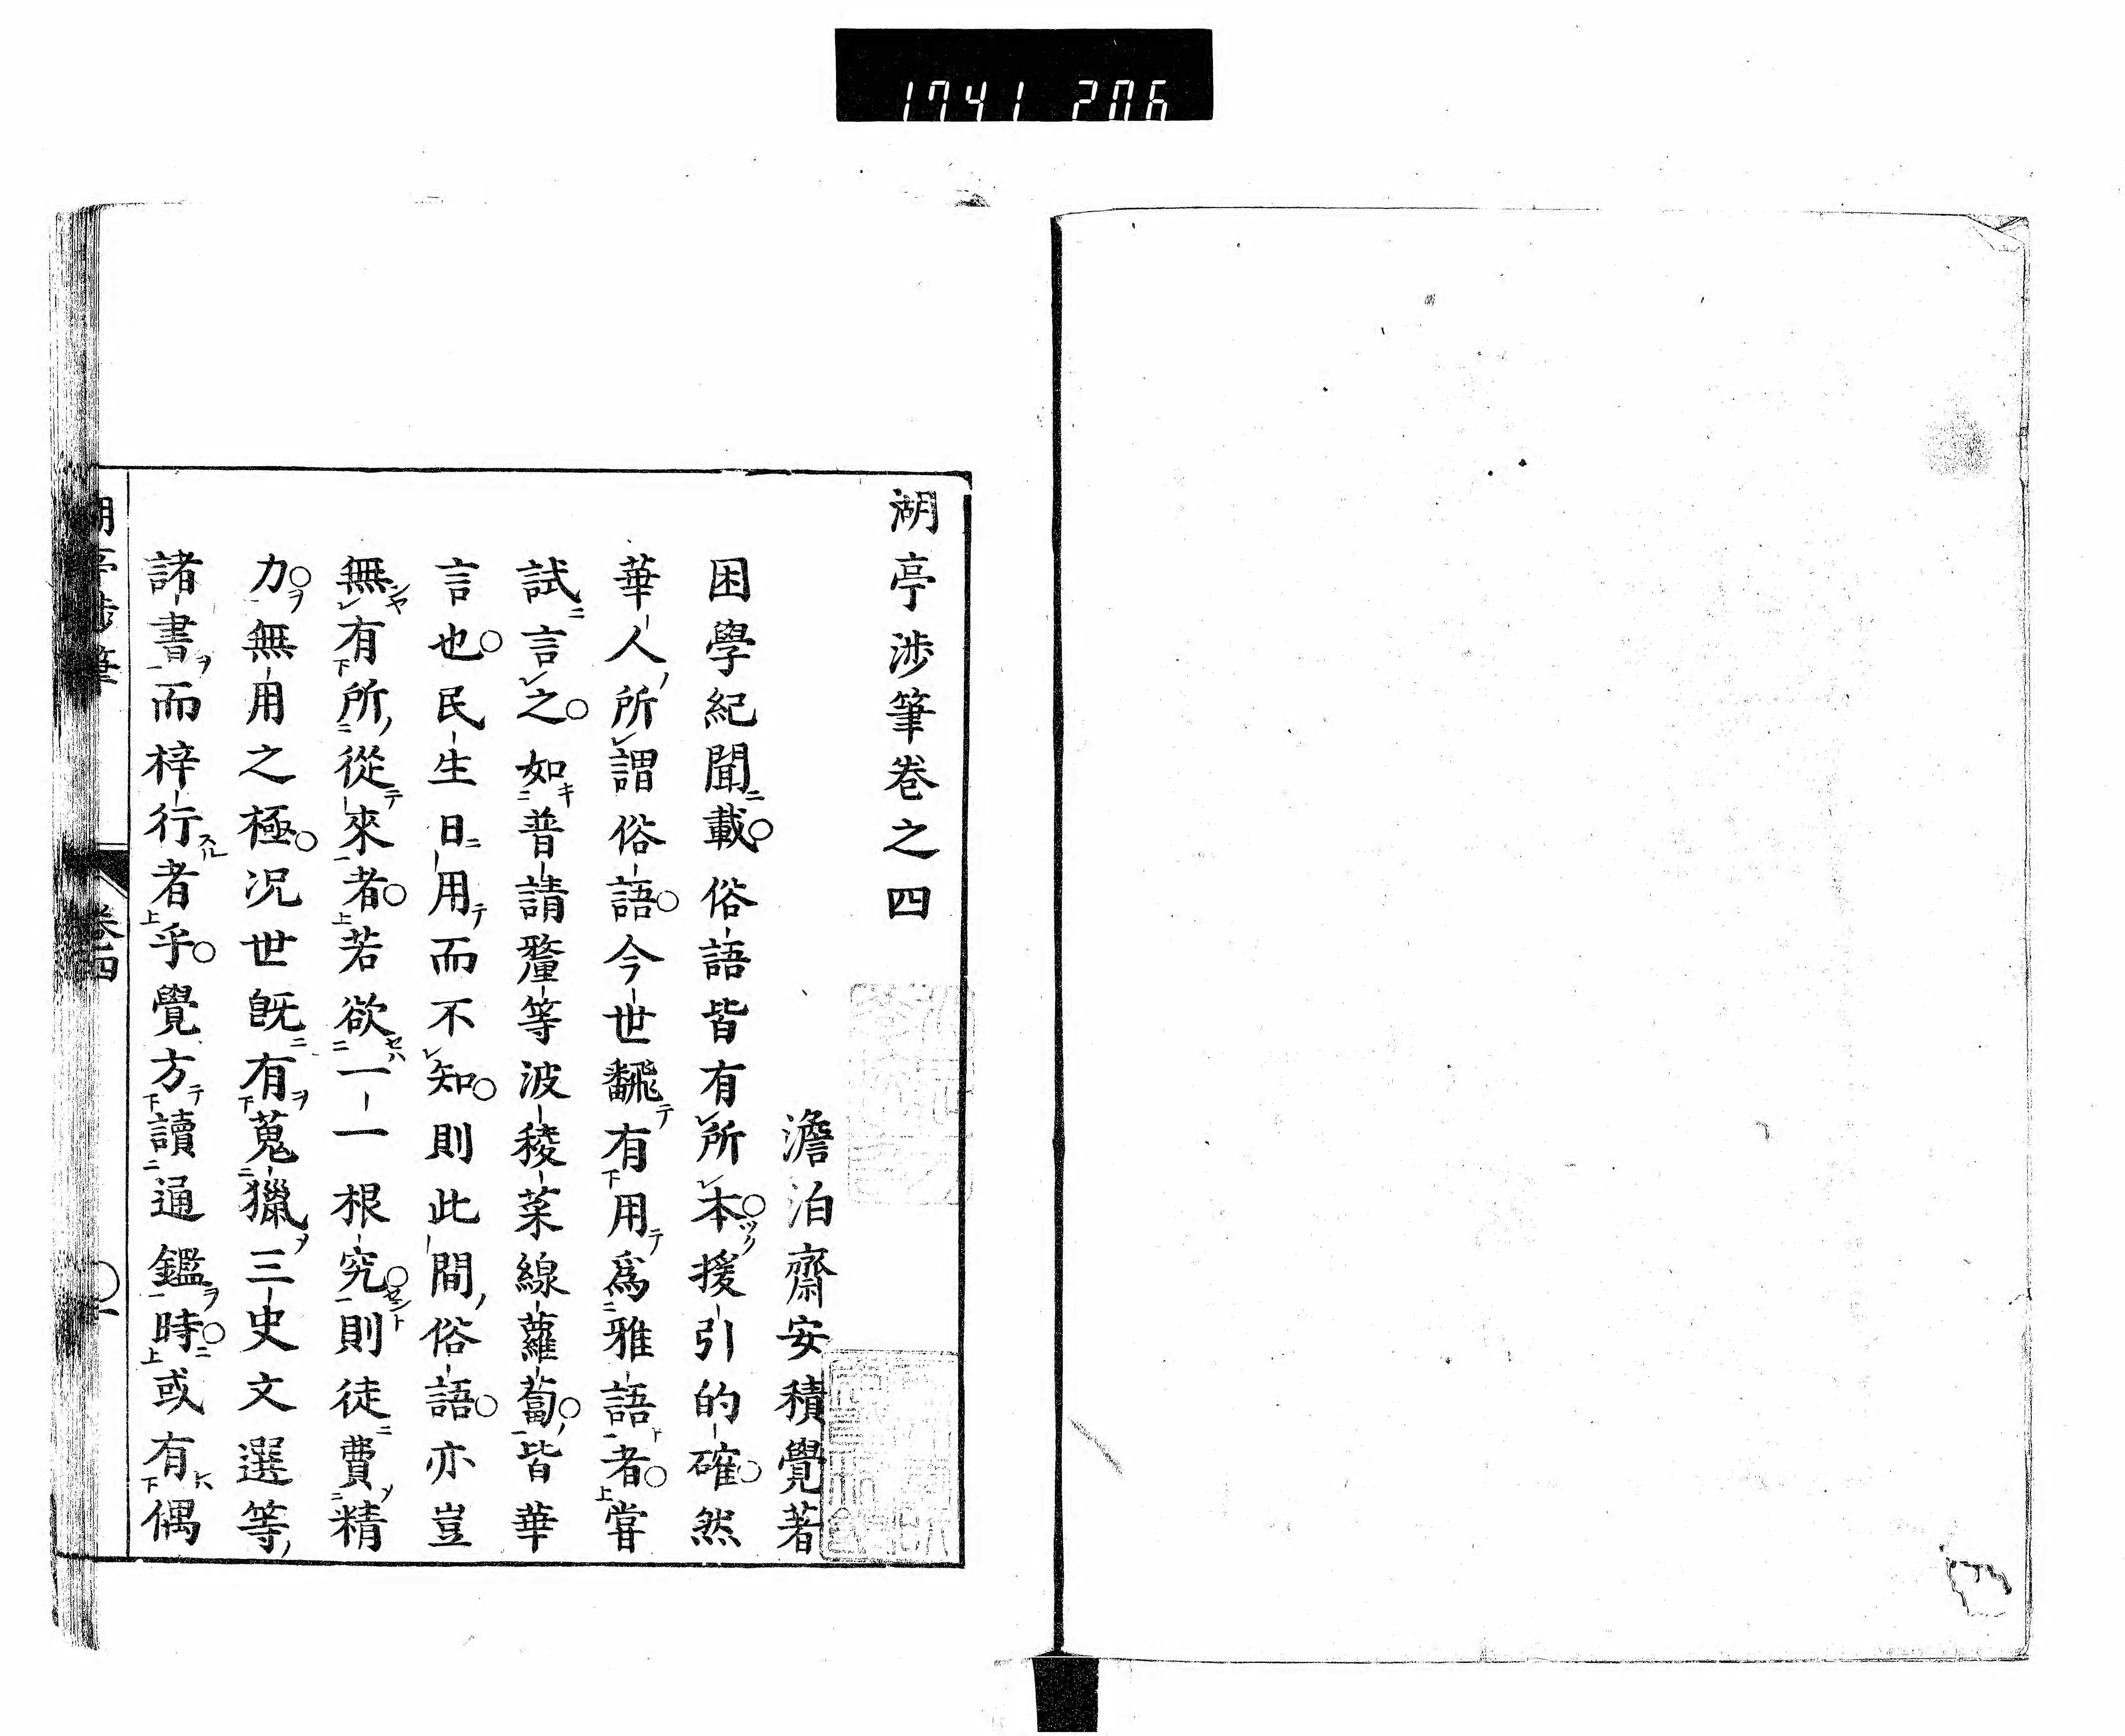 1741 206
湖亭渉筆卷之四
澹泊齋安積覺著
困學紀聞載俗語皆有所本援引的確然
華人所謂俗語今世飜有用爲雅語者嘗
試言之如普請釐等波稜菜線蘿蔔皆華
言也民生日用而不知則此間俗語亦豈
無有所從來者若欲一一根究則徒費精
力無用之極況世既有蒐獵三史文選等
諸書而梓行者乎覺方讀通鑑時或有偶
湖亭渉筆
卷四